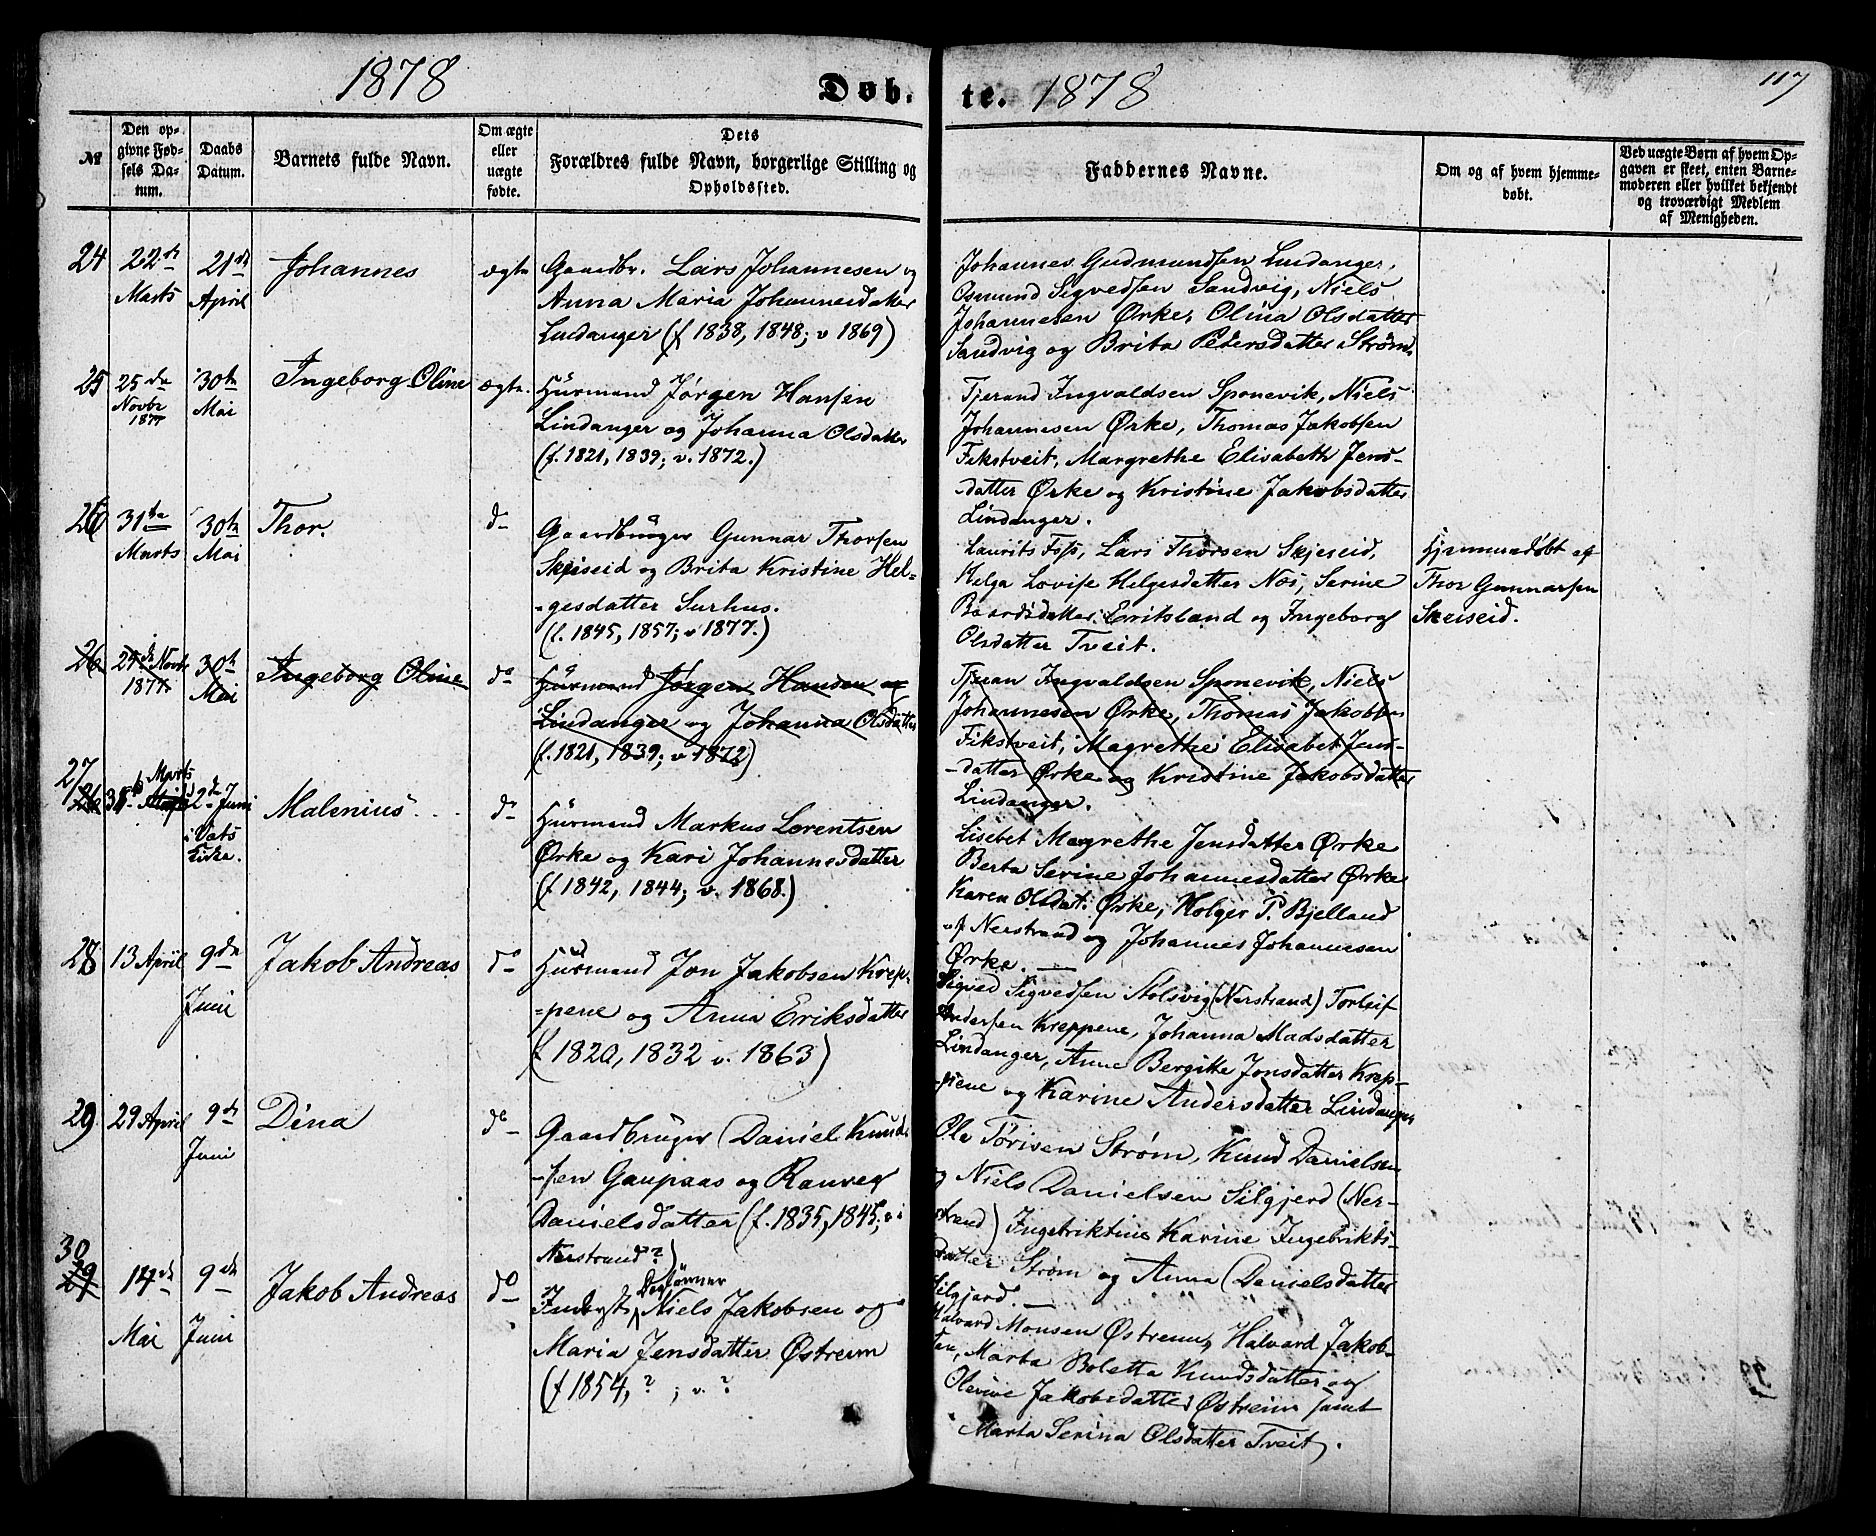 1878
Døb-
te. 1878
117
№
Den op-
givne Fød-
sels Da-
tum.
Daabs
Datum.
Barnets fulde Navn.
Om ægte
eller
uægte
fødte.
Dets
Forældres fulde Navn, borgerlige Stilling og
Opholdssted.
Faddernes Navne.
Om og af hvem hjemme-
døbt.
Ved uægte Børn af hvem Op-
gaven er skeet, enten Barne-
moderen eller hvilket bekjendt
og troværdigt Medlem
af Menigheden.
24
22de
Marts
21de
April
Johannes
ægte
Gaardbr. Lars Johannesen og
Anna Maria Johannesdatter
Lindanger (f 1838, 1848; v 1869)
Johannes Gudmundsen Lindanger,
Osmund Sigvedsen Sandvig, Niels
Johannesen Ørke, Olina Olsdatter
Sandvig og Brita Pedersdatter Strøm.
25
25de
Novbr
1877
30te
Mai
Ingeborg Oline
ægte.
Huusmand Jørgen Hansen
Lindanger og Johanna Olsdatter
(f. 1821, 1839; v. 1872.)
Tjerand Ingvaldsen Sponevik, Niels
Johannesen Ørke, Thomas Jakobsen
Fikstveit, Margrethe Elisabeth Jens-
datter Ørke og Kristine Jakobsdatter
Lindanger.
26
31te
Marts
30te
Mai
Thor.
do
Gaardbruger Gunnar Thorsen
Skjeseid og Brita Kristine Hel-
gesdatter Surhus.
(f. 1845, 1857; v 1877.)
Laurits Foss, Lars Thorsen Skjeseid,
Helga Lovise Helgesdatter Næs, Serine
Baardsdatter Eritsland og Ingeborg
Olsdatter Tveit.
Hjemmedøbt af
Thor Gunnarsen
Skeiseid.
26
Novbr
1877.
30te
Mai
Ingeborg Oline
do
Huusmand Jørgen Hansen
Lindanger og Johanna Olsdatter
(f. 1821, 1839; v 1872)
Ingvaldsen Sponevik, Niels
Johannesen Ørke, Thomas Jakobsen
Fikstveit, Magrethe Elisabet Jens-
datter Ørke og Kristine Jakobsdatter
Lindanger.
27
Marts
2de Juni
i Vats
Kirke.
Malenius
do
Huusmand Markus Lorentsen
Ørke og Kari Johannesdatter
(f. 1842, 1844; v. 1868.)
Lisebet Magrethe Jensdatter Ørke
Berta Serine Johannesdatter Ørke
Karen Olsdat. Ørke, Holger P. Bjelland
af Nerstrand og Johannes Johannesen
Ørke.
28
13 April
9de
Juni
Jakob Andreas
do
Huusmand Jon Jakobsen Krep-
pene og Anna Eriksdatter
(f 1820, 1832 v. 1863)
Sigved Sigvedsen Stolsvig (Nerstrand) Torleif
Andersen Kreppene, Johanna Madsdatter
Lindanger, Anne Bergite Jonsdatter Krep-
pene og Karine Andersdatter Lindanger
29
29 April
9de
Juni
Dina
do
Gaardbruger Daniel Knud-
sen Gaupaas og Ranveg
Danielsdatter (f. 1835, 1845; v. i
Nerstrand?)
Ole Tørisen Strøm, Knud Danielsen
og Niels Danielsen Silgjerd (Ner-
strand) Ingebriktine Karine Ingebrikts-
datter Strøm og Anna Danielsdatter
Silgjerd.
30
29
14de
Mai
9de
Juni
Jakob Andreas
do
Inderst, Niels Jakobsen og
Maria Jensdatter Østreim
(f 1854, ? ; v. ?
Halvard Monsen Østreim, Halvard Jakob-
sen, Marta Boletta Knudsdatter og
Olevine Jakobsdatter Østreim samt
Marta Serina Olsdatter Tveit.